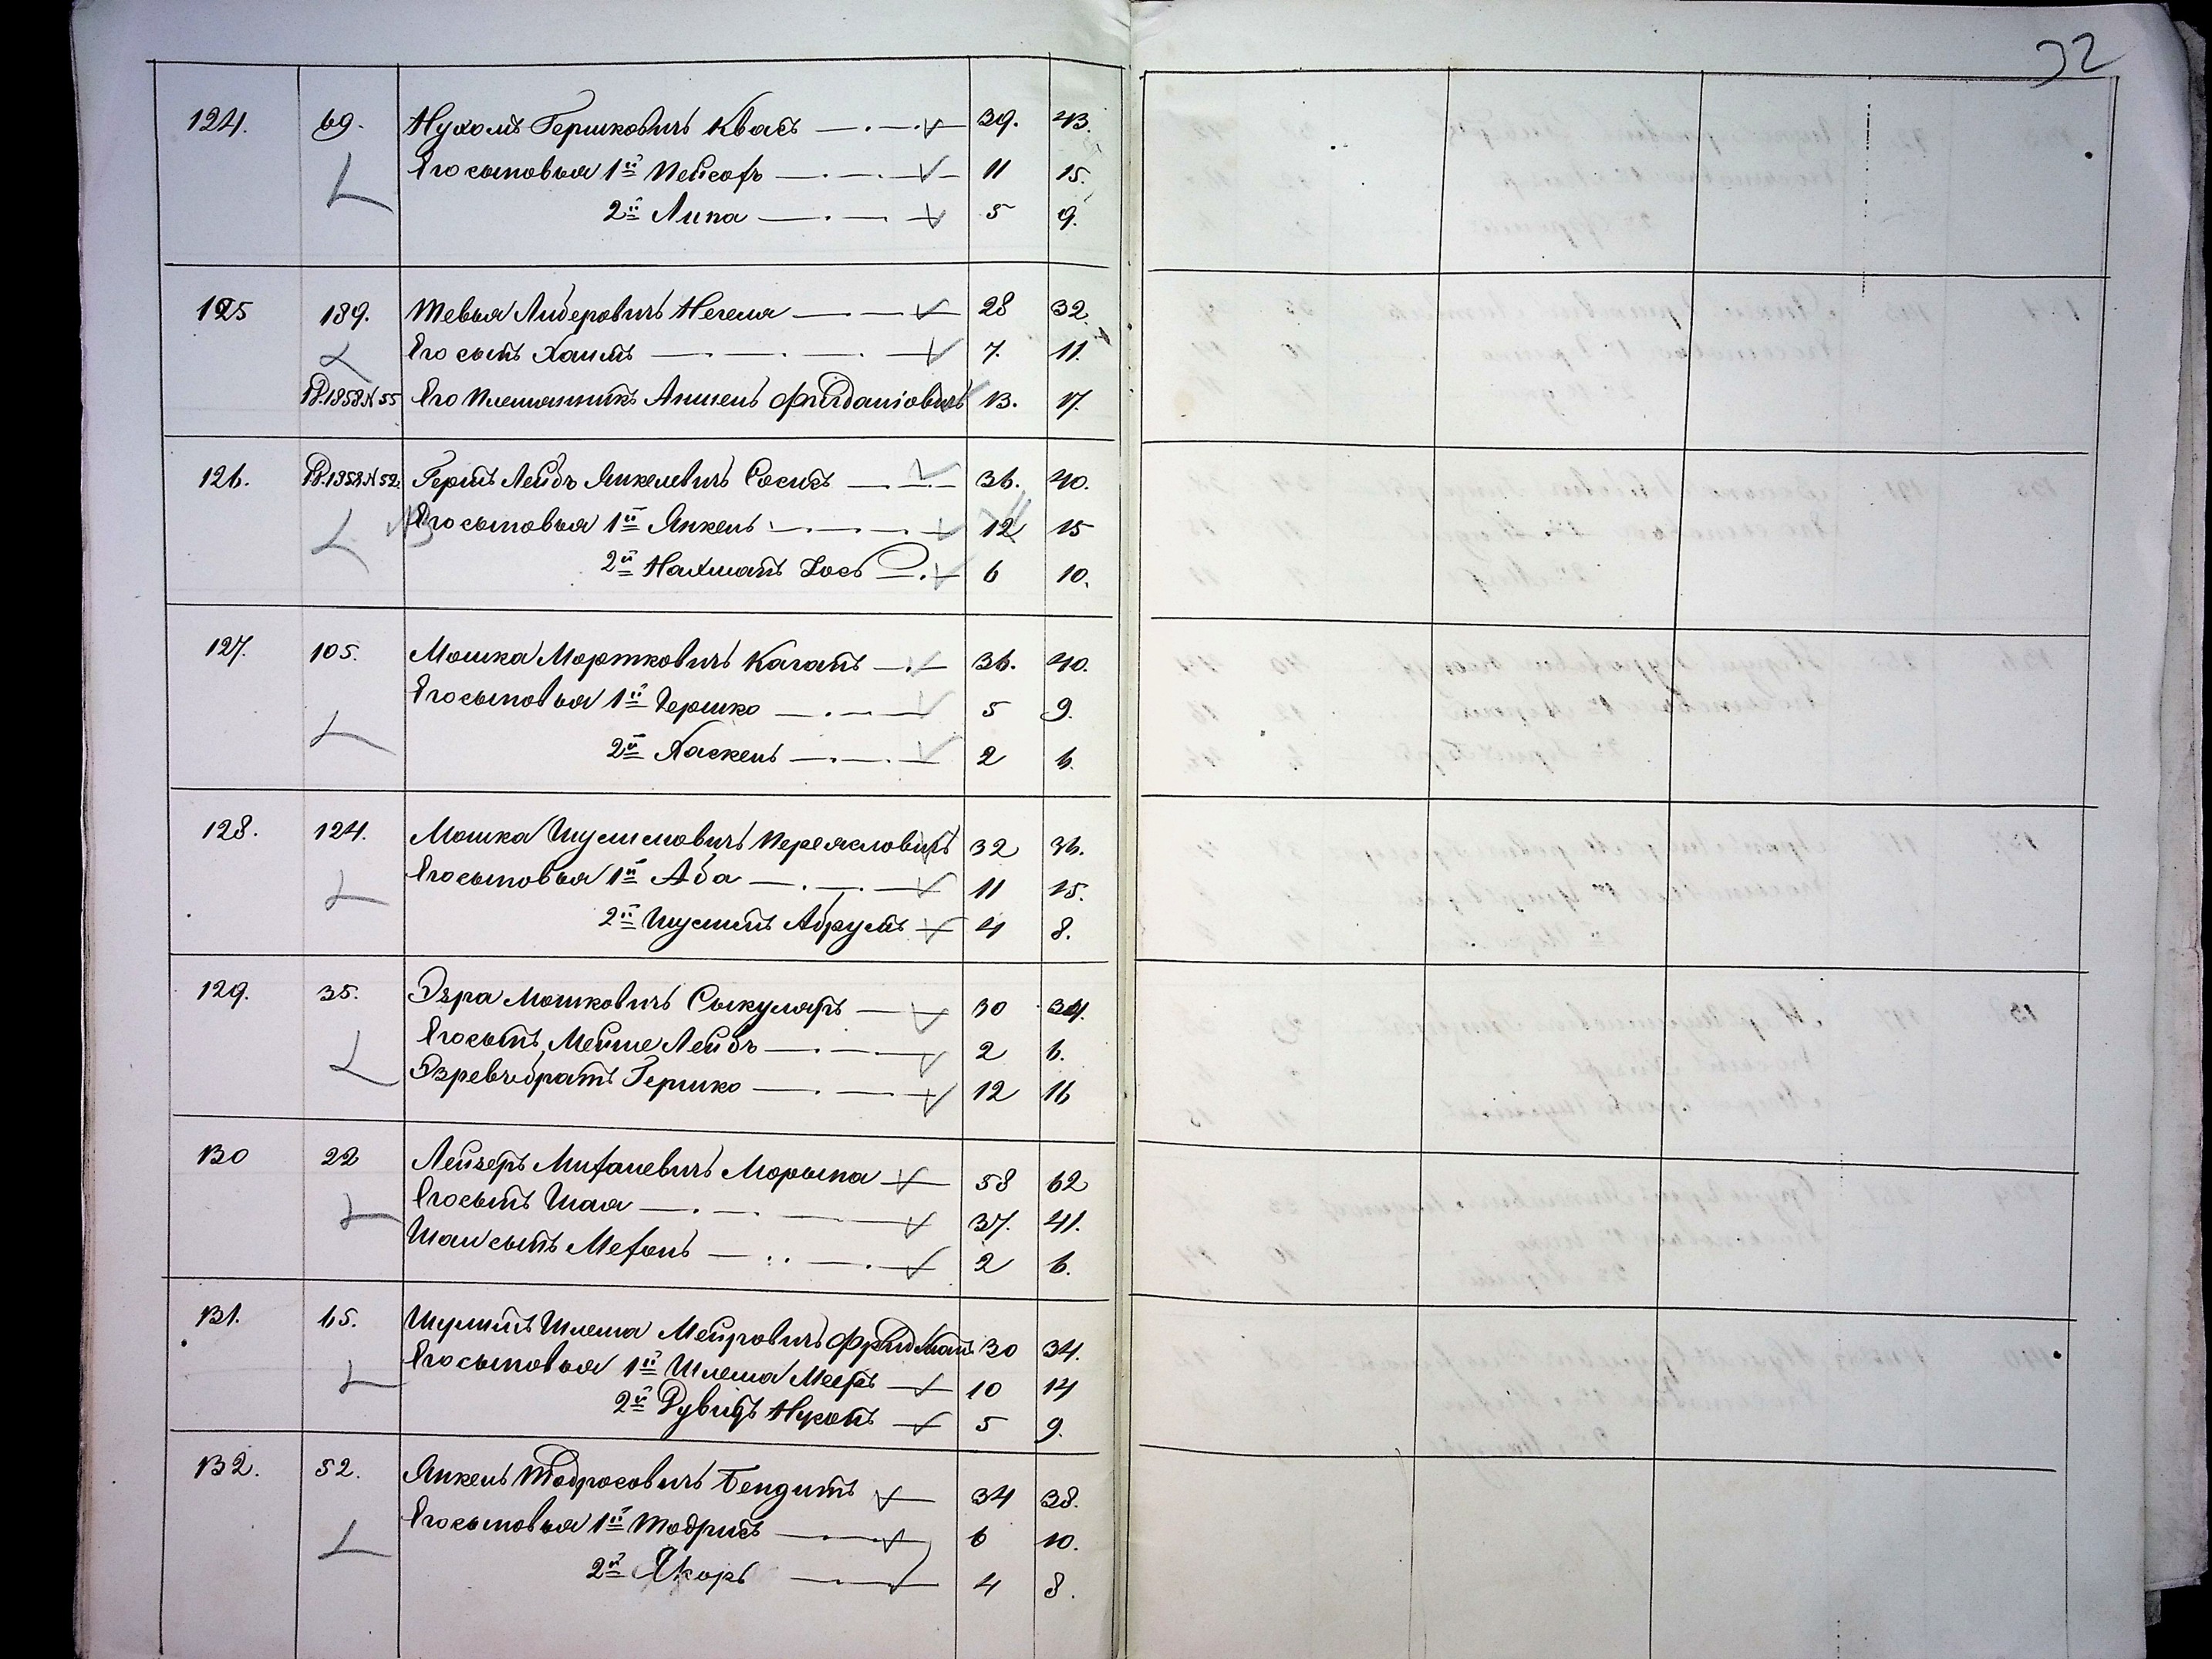 32
124. 69. Нухомъ Гершковичъ Квасъ 39. 43.
Его сыновья 1й Пейсахъ 11 15.
2й Липа 5 9.
125 189. Тевья Лидеровичъ Негела 28 32.
Его сынъ Хаимъ 7. 11.
Р.1858 N 55 Его Племянникъ Аншель 13. 17.
126. Р.1858 N 52. Гершъ Лейбъ Янкелевичъ Сосисъ 36. 40.
Его сыновья 1й Янкель 12 15
2й Нахманъ Іосъ 6 10.
127. 105. Мошка Мортковичъ Каганъ 36. 40.
Его сыновья 1й Гершко 5 9.
2й Хаскель 2 6.
128. 124. Мошка Шулимовичъ Переясловичъ 32 36.
Его сыновья 1й Аба 11 15.
2й Шулимъ Абрумъ 4 8.
129. 35. Эзра Мошковичъ Сыкуляръ 30 34.
Его сынъ Мейше Лейбъ 2 6.
Эзревъ братъ Гершко 12 16
130 22 Лейзеръ Михелевичъ Морыпа 58 62
Его сынъ Шая 37. 41.
Шаи сынъ Мехель 2 6.
131. 65. Шулимъ Шлема Меировичъ Фридманъ 30 34.
Его сыновья 1й Шлема Мееръ 10 14
2й Дувидъ Нухомъ 5 9.
132. 52. Янкель Тодросовичъ Бендитъ 34 38.
Его сыновья 1й Тодрисъ 6 10.
2й 4 8.